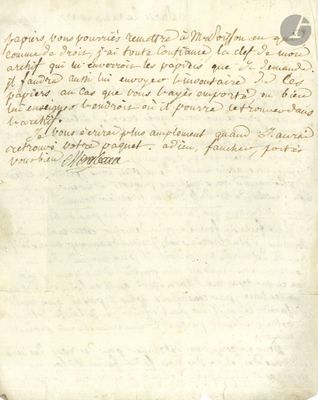 papiers, vous pourriés remettre à Mr doisson en qui
comme de droit, j'ai toute confiance la clef de mon
archif qui m'envoiroit les papiers que je demande.
il faudra aussi lui envoyer l'inventaire de ces
papiers, au cas que vous l'ayés emporté, ou bien
lui enseigner l'endroit où il pourra le trouver dans
l'archif.
Je vous écrirai plus amplement quand j'aurai
retrouvé votre paquet. adieu, faucher, portés
vous bien